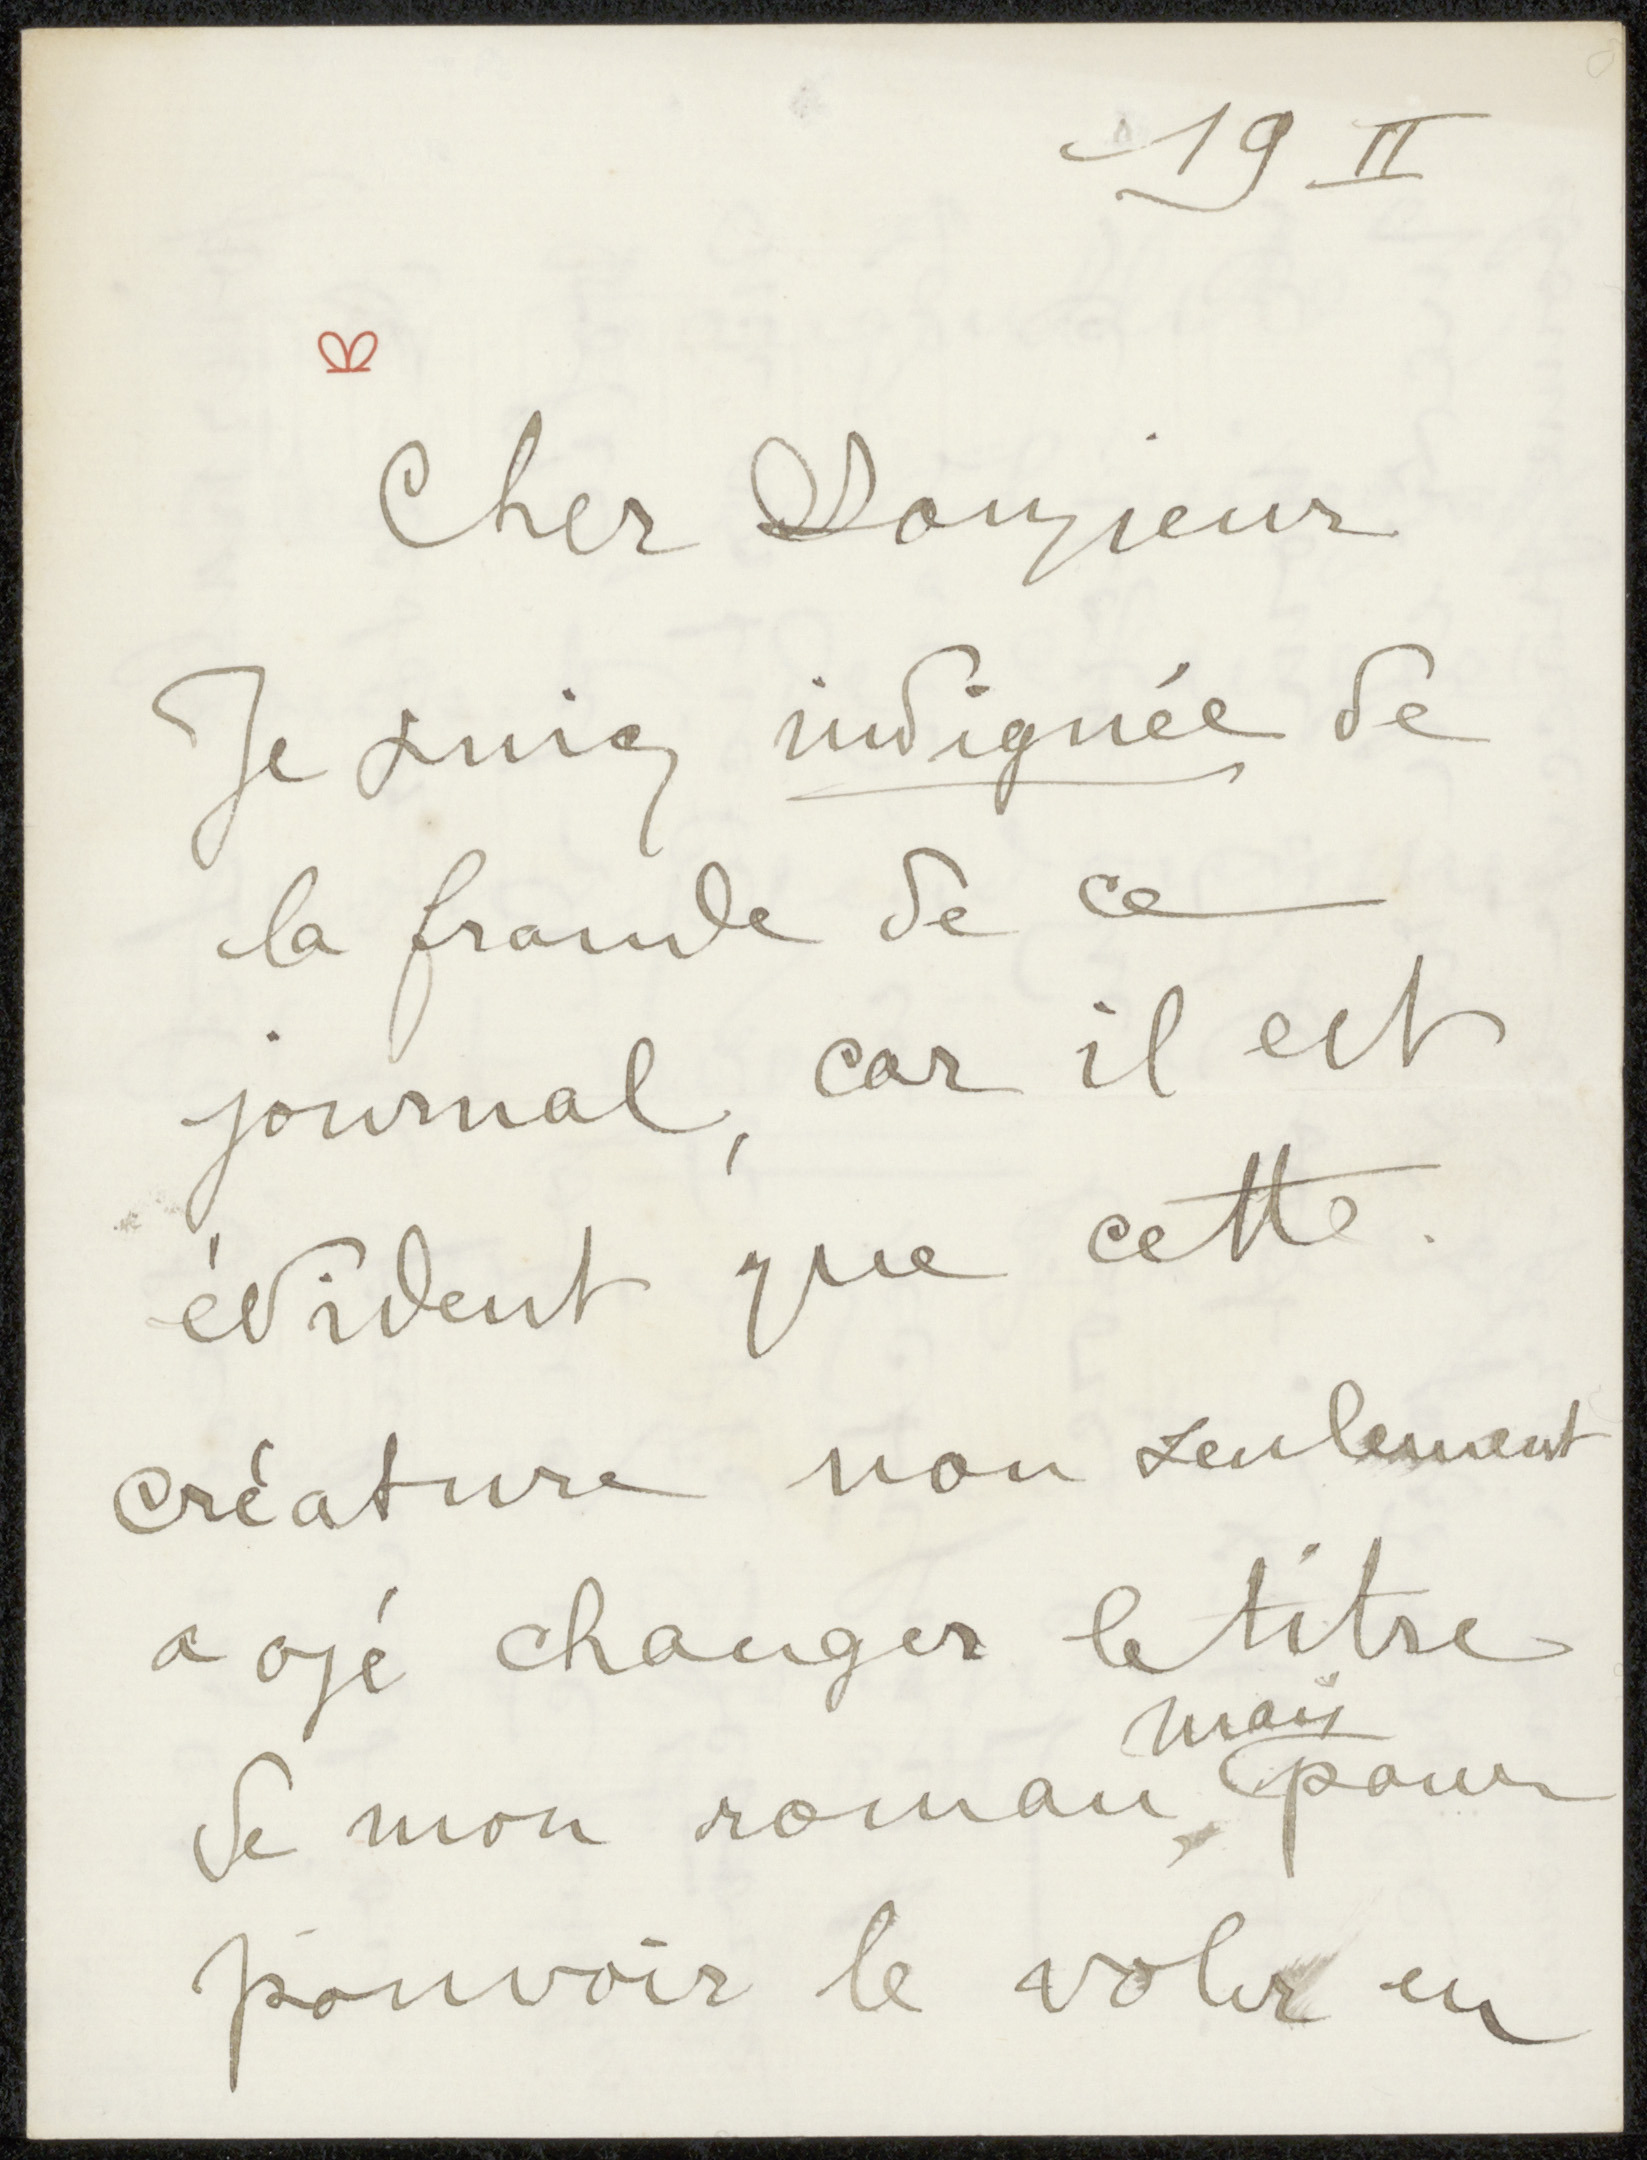 19 II
Cher Monsieur
Je suis indignée de
la fraude de ce
journal, car il est
évident que cette
créature non seulement
a osé changer le titre
mais
de mon roman, pour
pouvoir le voler en